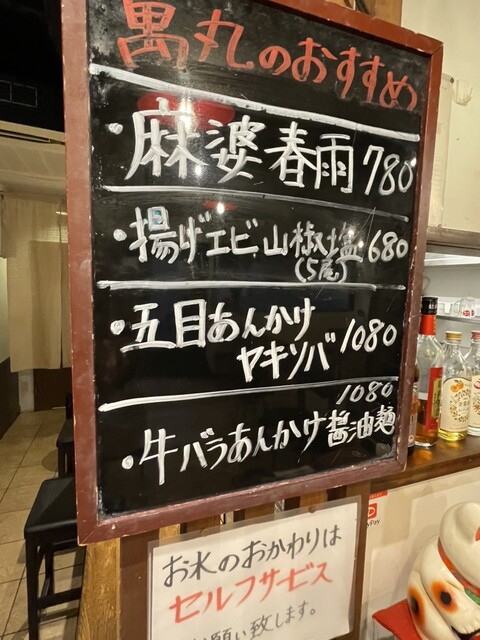 萬丸のおすすめ
・麻婆春雨 780
・揚げエビ山椒塩 680
(5尾)
・五目あんかけ
ヤキソバ 1080
1080
・牛バラあんかけ醤油麺
お水のおかわりは
セルフサービス
お願い致します。